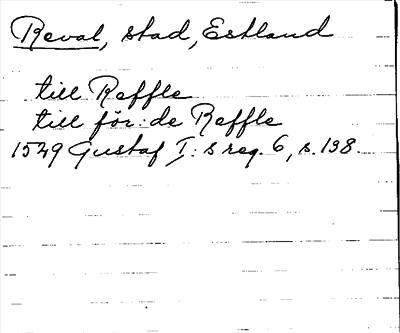 Reval, stad, Estland
till Reffle
till för: de Reffle
1549 Gustaf I: s reg. 6, s. 138.